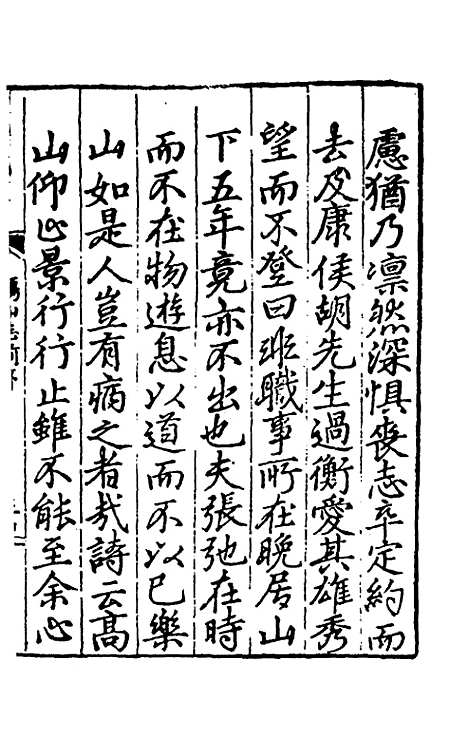 慮猶乃凛然深惧喪志卒定約而
去及康侯胡先生過衡愛其雄秀
望而不登曰非職事所在晚居山
下五年竟亦不出也夫張弛在時
而不在物遊息以道而不以已樂
山如是人豈有病之者㢤詩云髙
山仰止景行行止雖不能至余心